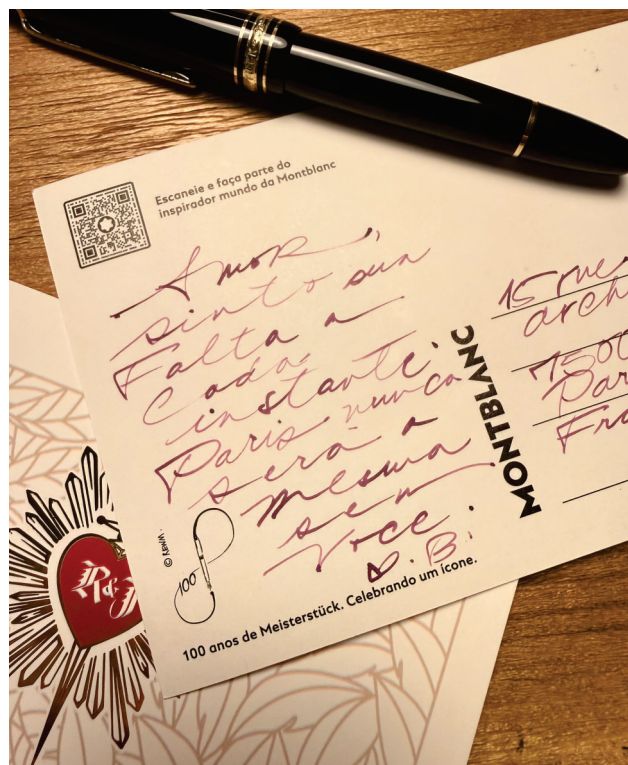 Escaneie e faça parte do
inspirador mundo da Montblanc
Amor,
sinto sua
Falta a
Cada
instante.
Paris nunca
será a
mesma
sem
Você.
B.
15 rue
arch
7500
Par
Fra
MONTBLANC
100
100 anos de Meisterstück. Celebrando um ícone.